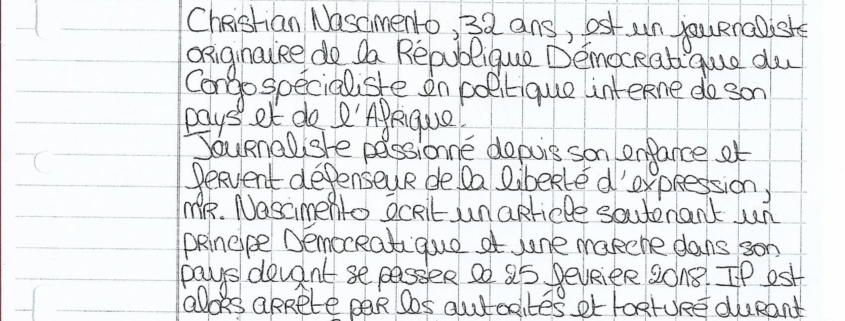 Christian Nascimento, 32 ans, est un journaliste
originaire de la République Démocratique du
Congo spécialiste en politique interne de son
pays et de l'Afrique.
Journaliste passionné depuis son enfance et
fervent défenseur de la liberté d'expression,
MR. Nascimento écrit un article soutenant un
principe Démocratique et une marche dans son
pays devant se passer le 25 fevrier 2018. Il est
alors arrêté par les autorités et torturé durant